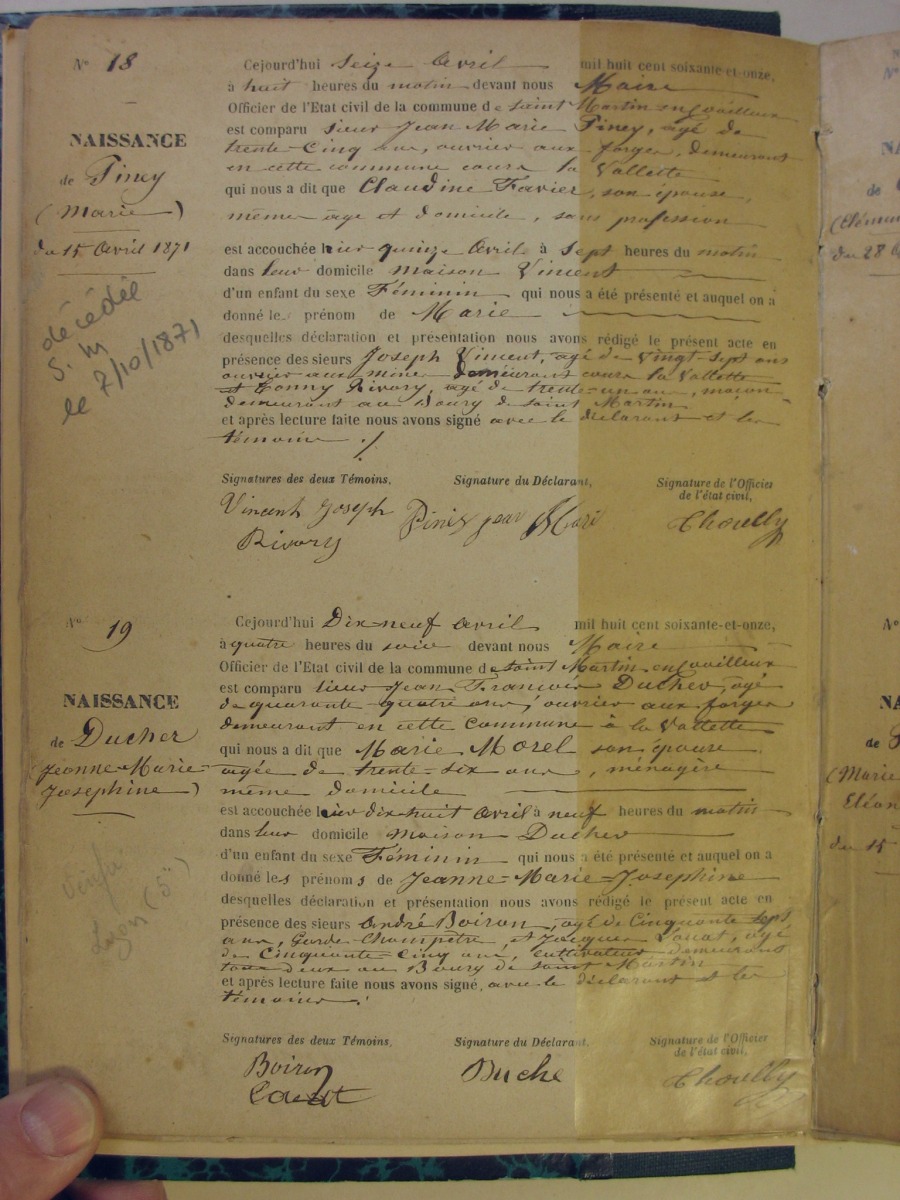 N° 18
NAISSANCE
de Piney
(Marie)
du 15 Avril 1871
décédée
S. M
le 7/10/1871
Cejourd'hui seize Avril mil huit cent soixante-et-onze,
à huit heures du matin devant nous Maire
Officier de l'Etat civil de la commune de Saint Martin en Coailleux
est comparu sieur Jean Marie Piney, agé de
trente-Cinq ans, ouvrier aux forges, demeurant
en cette commune cours la Vallette
qui nous a dit que Claudine Favier, son épouse,
même age et domicile, sans profession
est accouchée hier quinze Avril à Sept heures du matin
dans leur domicile maison Vincent
d'un enfant du sexe Féminin qui nous a été présenté et auquel on a
donné le prénom de Marie
desquelles déclaration et présentation nous avons rédigé le présent acte en
présence des sieurs Joseph Vincent, agé de Vingt-sept ans
ouvrier aux mine demeurant cours la Vallette
et Rivory, agé de trente-un ans, maçon
demeurant au Bourg de Saint Martin
et après lecture faite nous avons signé avec le déclarant et les
témoins ./
Signatures des deux Témoins, Signature du Déclarant, Signature de l'Officier
de l'état civil,
Vincent Joseph Pinex jean Mari Chorelly
Rivory
N° 19
NAISSANCE
de Ducher
(Jeanne-Marie-
Josephine)
Lyon (5e)
Cejourd'hui Dix neuf Avril mil huit cent soixante-et-onze,
à quatre heures du soir devant nous Maire
Officier de l'Etat civil de la commune de Saint Martin en Coailleux
est comparu sieur Jean François Ducher, agé
de quarante-quatre ans, ouvrier aux forges
demeurant en cette Commune à la Vallette
qui nous a dit que Marie Morel son épouse
agée de trente-six ans, ménagère
même domicile
est accouchée hier dix huit Avril à neuf heures du matin
dans leur domicile maison Ducher
d'un enfant du sexe Féminin qui nous a été présenté et auquel on a
donné les prénoms de Jeanne-Marie-Josephine
desquelles déclaration et présentation nous avons rédigé le présent acte en
présence des sieurs André Boiron, agé de Cinquante Sept
ans, Garde Champêtre, et Jacques Louat, agé
de Cinquante-Cinq ans, cultivateur demeurant
tous deux au Bourg de Saint Martin
et après lecture faite nous avons signé, avec le déclarant et les
témoins ./
Signatures des deux Témoins, Signature du Déclarant. Signature de l'Officier
de l'état civil,
Boiron Duche Chorelly
Louat